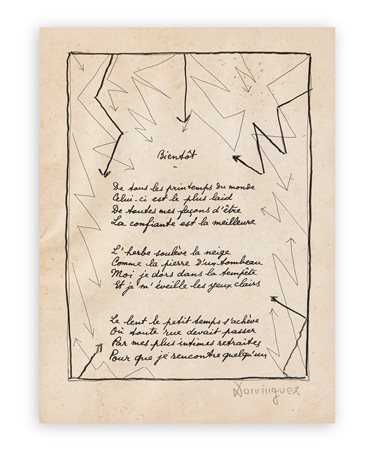 Bientôt
De tous les printemps du monde
Celui-ci est le plus laid
De toutes mes façons d'être
La confiante est la meilleure
L'herbe soulève la neige
Comme la pierre d'un tombeau
Moi je dors dans la tempête
Et je m'éveille les yeux clairs
Le lent le petit temps s'achève
Où toute rue devait passer
Par mes plus intimes retraites
Pour que je rencontre quelqu'un
Dominguez